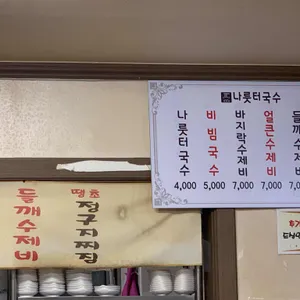 나룻터국수
나룻터국수 4,000
비빔국수 5,000
바지락수제비 7,000
얼큰수제비 7,000
들깨수제비 7,000
들깨수제비
땡초
정구지찌짐